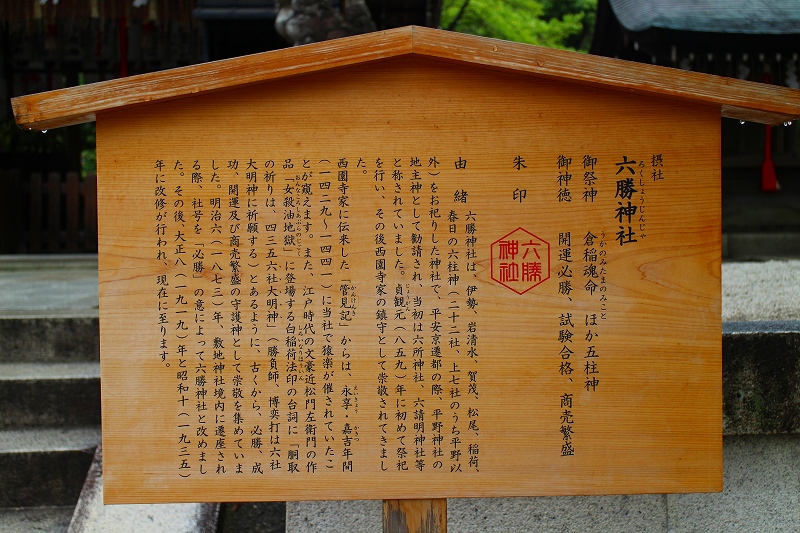 摂社
六勝神社
ろくしょうじんじゃ
御祭神　倉稲魂命　ほか五柱神
うかのみたまのみこと
御神徳　開運必勝、試験合格、商売繁盛
朱印
六勝神社
由緒　六勝神社は、伊勢、岩清水、賀茂、松尾、稲荷、
春日の六柱神（二十二社、上七社のうち平野以
外）をお祀りした神社で、平安京遷都の際、平野神社の
地主神として勧請され、当初は六所神社、六請明神社等
と称されていました。貞観元（八五九）年に初めて祭祀
じょうがん
を行い、その後西園寺家の鎮守として崇敬されてきまし
た。
西園寺家に伝来した「管見記」からは、永享・嘉吉年間
かんけんき
えいきょう
かきつ
（一四二九〜一四四一）に当社で猿楽が催されていたこ
とが窺えます。また、江戸時代の文豪近松門左衛門の作
品「女殺油地獄」に登場する白稲荷法印の台詞に「胴取
おんなころしあぶらのじごく
しろいなりほういん
の祈りは、四三五六社大明神」（勝負師、博奕打は六社
大明神に祈願する）とあるように、古くから、必勝、成
功、開運及び商売繁盛の守護神として崇敬を集めていま
した。明治六（一八七三）年、敷地神社境内に遷座され
る際、社号を「必勝」の意によって六勝神社と改めまし
た。その後、大正八（一九一九）年と昭和十（一九三五）
年に改修が行われ、現在に至ります。